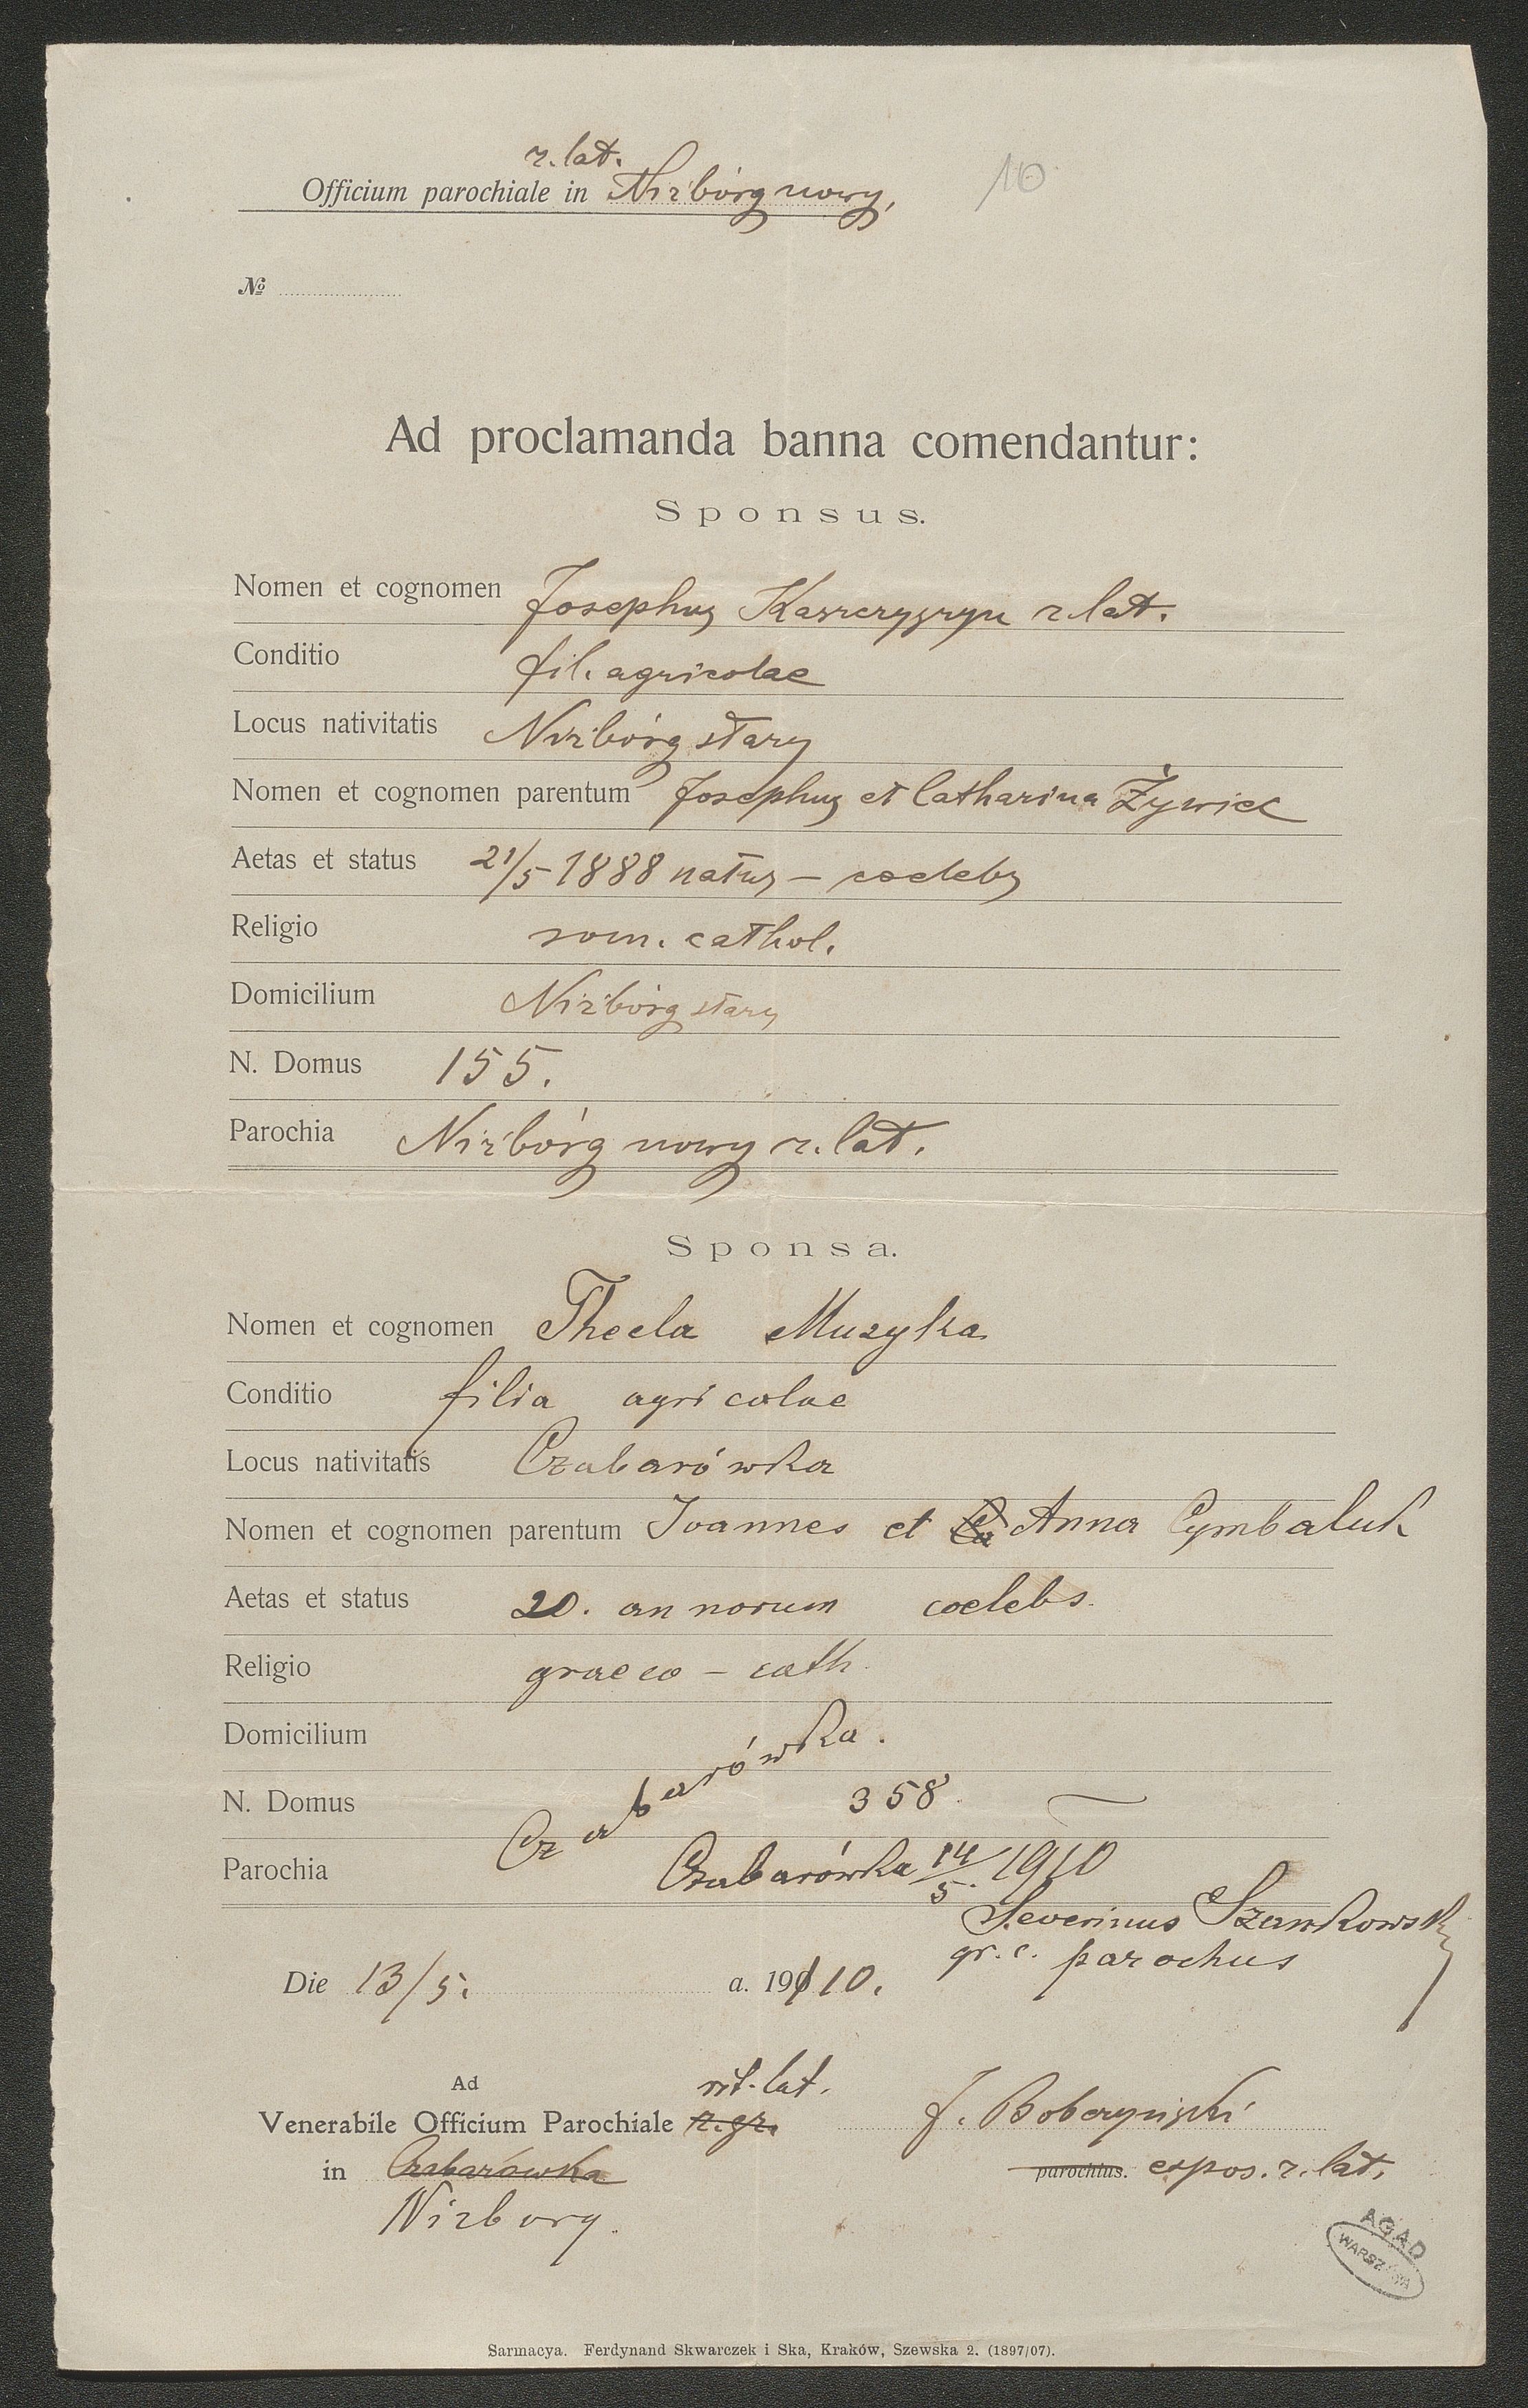 r. lat.
Officium parochiale in Niżbórg nowy,
10
№
Ad proclamanda banna comendantur:
Sponsus.
Nomen et cognomen Josephus r. lat.
Conditio fil. agricolae
Locus nativitatis Niżbórg stary
Nomen et cognomen parentum Josephus et Catharina Żywiec
Aetas et status 21/5 1888 natus – coelebs
Religio rom. cathol.
Domicilium Niżbórg stary
N. Domus 155.
Parochia Niżbórg nowy r. lat.
Sponsa.
Nomen et cognomen Thecla Muzyka
Conditio filia agricolae
Locus nativitatis Czabarówka
Nomen et cognomen parentum Joannes et Anna Cymbaluk
Aetas et status 20. annorum coelebs.
Religio graeco – cath.
Domicilium Czabarówka.
N. Domus 358.
Parochia Czabarówka 14/5. 1910
Severinus
gr. c. parochus
Die 13/5. a. 1910.
Ad rit. lat.
Venerabile Officium Parochiale r. gr. J. Boberzyński
in Czabarówka parochus. expos. r. lat.
Nizborg.
AGAD
WARSZAWA
Sarmacya. Ferdynand Skwarczek i Ska, Kraków, Szewska 2. (1897/07).